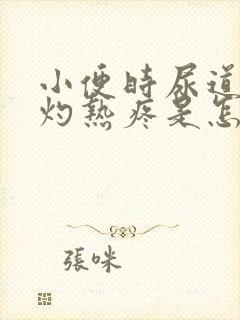 小便時尿道
灼熱疼是怎
張咪